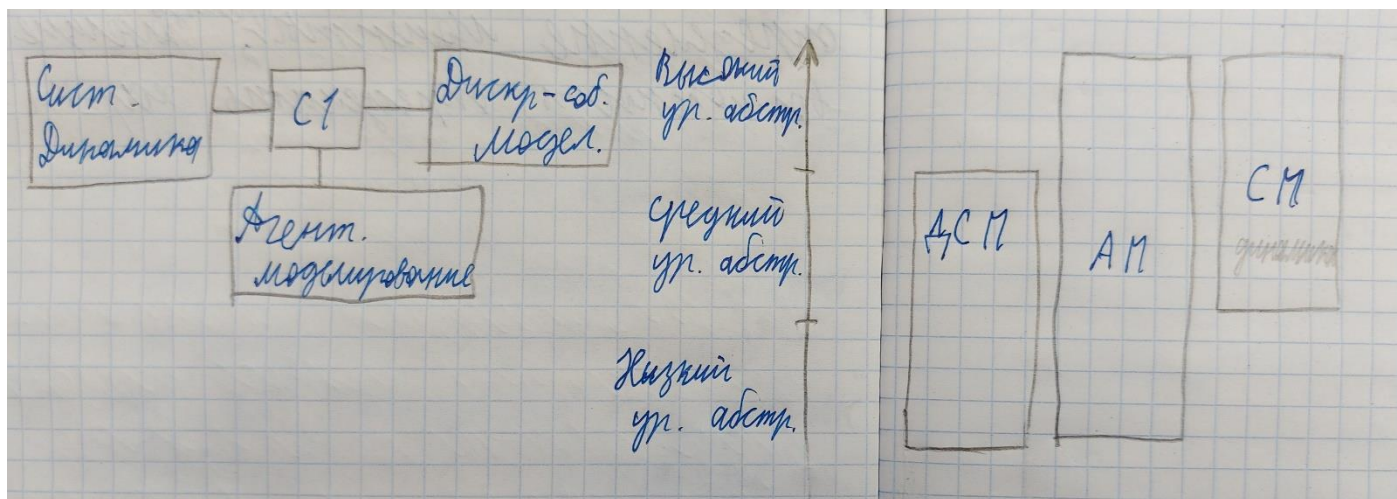 Сист.
Динамика
С1
Дискр-соб.
модел.
Агент.
моделирование
Высокий
ур. абстр.
Средний
ур. абстр.
Низкий
ур. абстр.
ДСМ
АМ
СМ
динамика